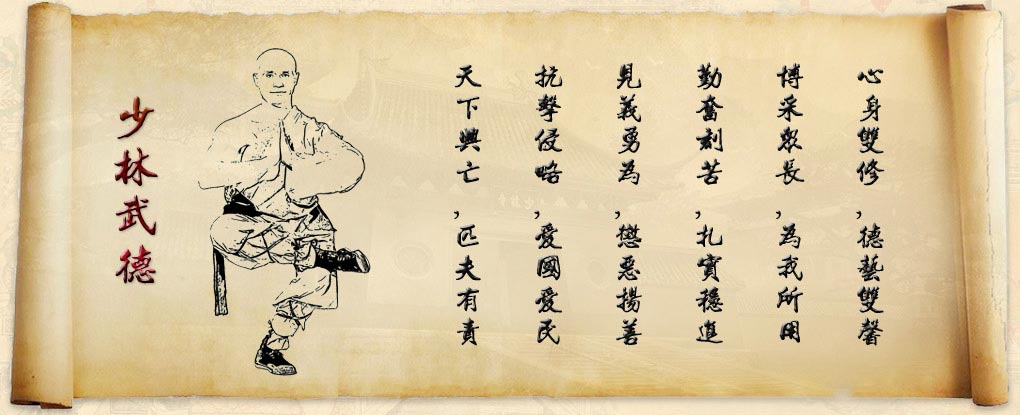 心身雙修,德藝雙馨
博采衆長,為我所用
勤奮刻苦,扎實穩進
見義勇為,懲惡揚善
抗擊侵略,愛國愛民
天下興亡,匹夫有責
少林武德